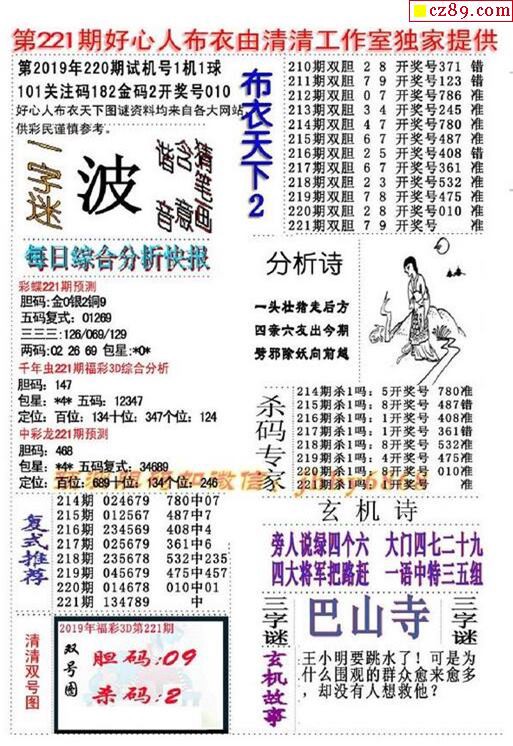 cz89.com
第221期好心人布衣由清清工作室独家提供
第2019年220期试机号1机1球
101关注码182金码2开奖号010
好心人布衣天下图谜资料均来自各大网站
供彩民谨慎参考。
一字谜
波
猜笔画
含意
谐音
布衣天下2
210期双胆 2 8 开奖号371 错
211期双胆 7 9 开奖号123 错
212期双胆 0 7 开奖号786 准
213期双胆 3 4 开奖号245 准
214期双胆 4 7 开奖号780 准
215期双胆 6 7 开奖号487 准
216期双胆 2 5 开奖号408 错
217期双胆 6 7 开奖号361 准
218期双胆 2 3 开奖号532 准
219期双胆 7 8 开奖号475 准
220期双胆 2 8 开奖号010 准
221期双胆 7 9 开奖号 准
每日综合分析快报
彩蝶221期预测
胆码:金0银2铜9
五码复式: 01269
三三三:126/069/129
两码:02 26 69 包星:*0*
千年虫221期福彩3D综合分析
胆码: 147
包星: *4* 五码: 12347
定位: 百位: 134十位: 347个位: 124
中彩龙221期预测
胆码: 468
包星: *4* 五码复式: 34689
定位: 百位: 689十位: 134个位: 246
分析诗
一头壮猪走后方
四亲六友出今期
劈邪除妖向前越
杀码专家
214期杀1吗: 5开奖号 780准
215期杀1吗: 8开奖号 487错
216期杀1吗: 2开奖号 408准
217期杀1吗: 1开奖号 361错
218期杀1吗: 8开奖号 532准
219期杀1吗: 4开奖号 475错
220期杀1吗: 8开奖号 010准
221期杀1吗: 0开奖号 准
复式推荐
214期 024679 780中07
215期 012567 487中7
216期 234569 408中4
217期 025679 361中6
218期 235678 532中235
219期 045679 475中457
220期 014678 010中01
221期 134789 中
玄机诗
旁人说绿四个六 大门四七二十九
四大将军把路赶 一语中特三五组
三字谜
巴山寺
三字谜
清清双号图
2019年福彩3D第221期
双号图
胆码:09
杀码:2
玄机故事
王小明要跳水了！可是为
什么围观的群众愈来愈多
，却没有人想救他？